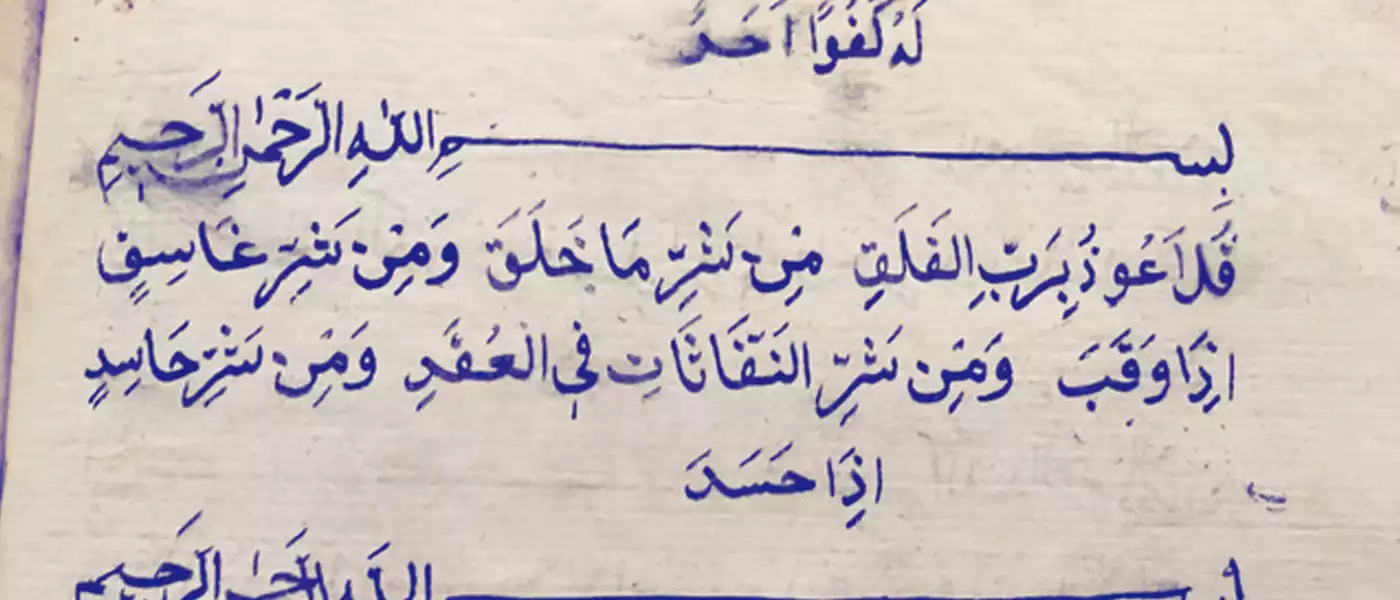 لَهُ كُفُوًا اَحَدٌ
بِسـمِ اللّٰهِ الرَّحْمٰنِ الرَّحِيمِ
قُلْ اَعُوذُ بِرَبِّ الفَلَقِ مِنْ شَرِّ مَا خَلَقَ وَمِنْ شَرِّ غَاسِقٍ
اِذَا وَقَبَ وَمِنْ شَرِّ النَفَّاثَاتِ فِي العُقَدِ وَمِنْ شَرِّ حَاسِدٍ
اِذَا حَسَدَ
بسـم اللّه الرَّحمٰن الرَّحيم